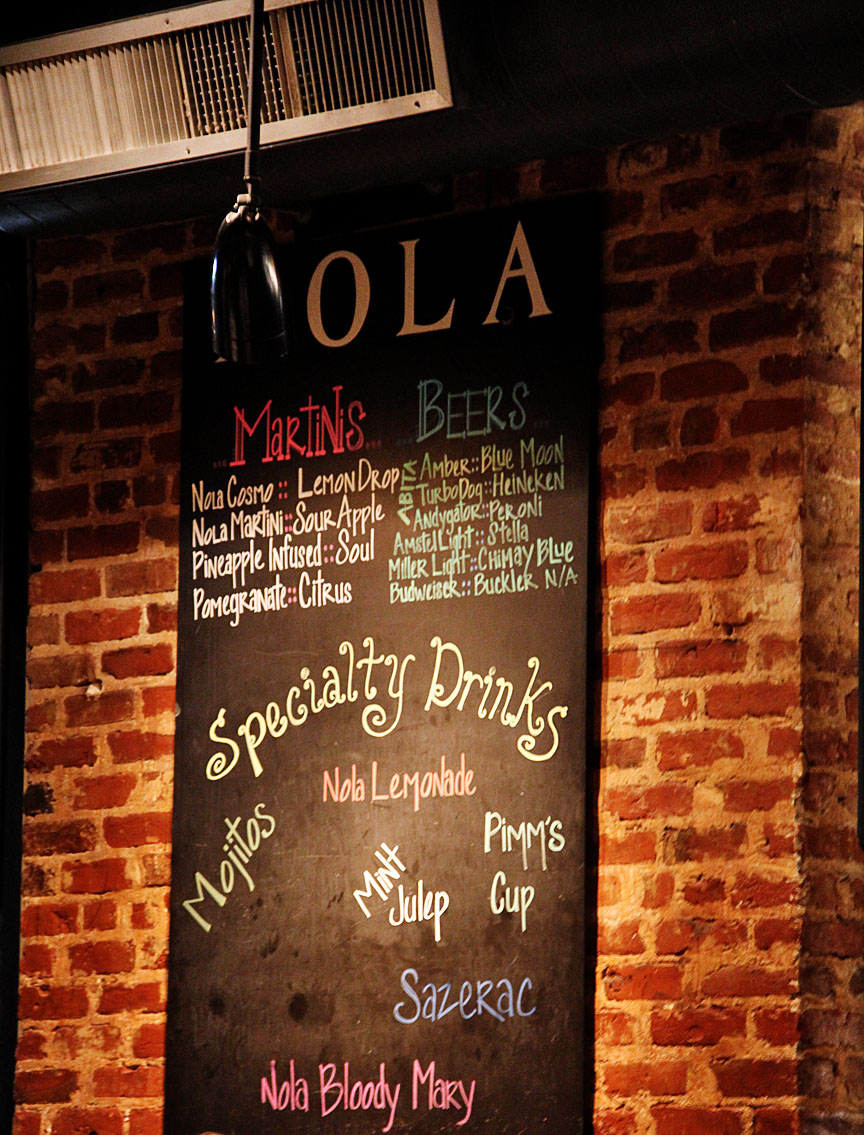 OLA
Martinis
Nola Cosmo :: Lemon Drop
Nola Martini :: Sour Apple
Pineapple Infused :: Soul
Pomegranate :: Citrus
Beers
ABITA
Amber :: Blue Moon
TurboDog :: Heineken
Andygator :: Peroni
Amstel Light :: Stella
Miller Light :: Chimay Blue
Budweiser :: Buckler N/A
Specialty Drinks
Nola Lemonade
Mojitos
Mint
Julep
Pimm's
Cup
Sazerac
Nola Bloody Mary